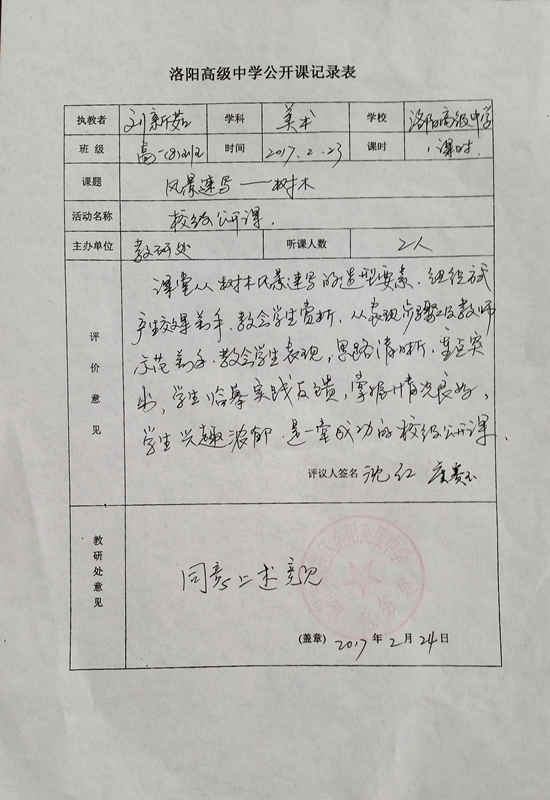 洛阳高级中学公开课记录表
执教者 刘新茹 学科 美术 学校 洛阳高级中学
班 级 高一(8)班 时间 2017.2.23 课时 1课时.
课题 风景速写——树木
活动名称 校级公开课.
主办单位 教研处 听课人数 2人
评价意见
课堂从树木风景速写的造型要素、组织方式
产生效果着手.教会学生赏析,从表现步骤以及教师
示范着手.教会学生表现,思路清晰.重点突
出,学生临摹实践反馈,掌握情况良好,
学生兴趣浓郁.是一堂成功的校级公开课.
评议人签名 沈红
教研处意见
同意上述意见
(盖章) 2017 年 2 月 24 日